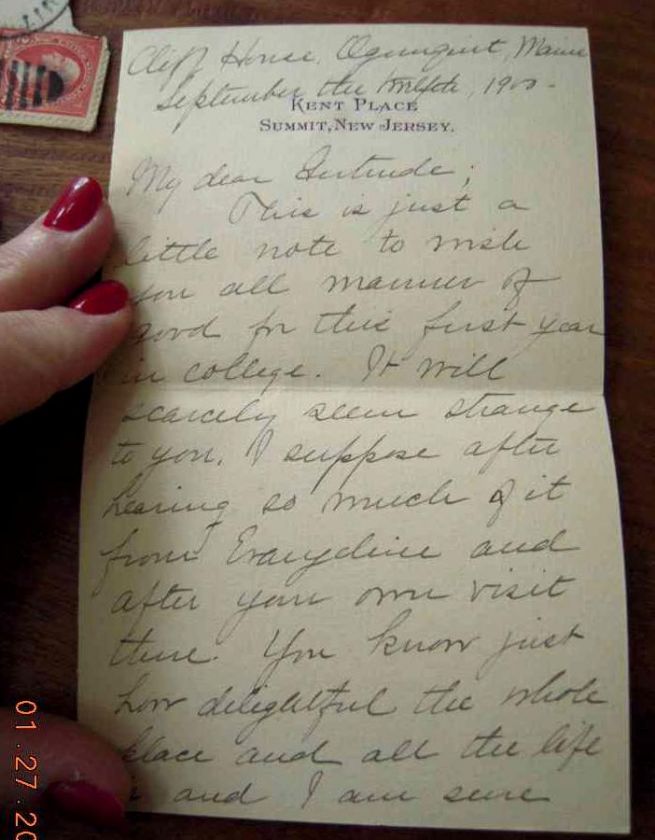 Cliff House, Ogunquit, Maine
September the twelfth, 1900-
KENT PLACE
SUMMIT, NEW JERSEY.
My dear Gertrude;
This is just a
little note to wish
you all manner of
good for this first year
in college. It will
scarcely seem strange
to you, I suppose after
hearing so much of it
from Evangeline and
after your own visit
there. You know just
how delightful the whole
place and all the life
is and I am sure
01.27.20